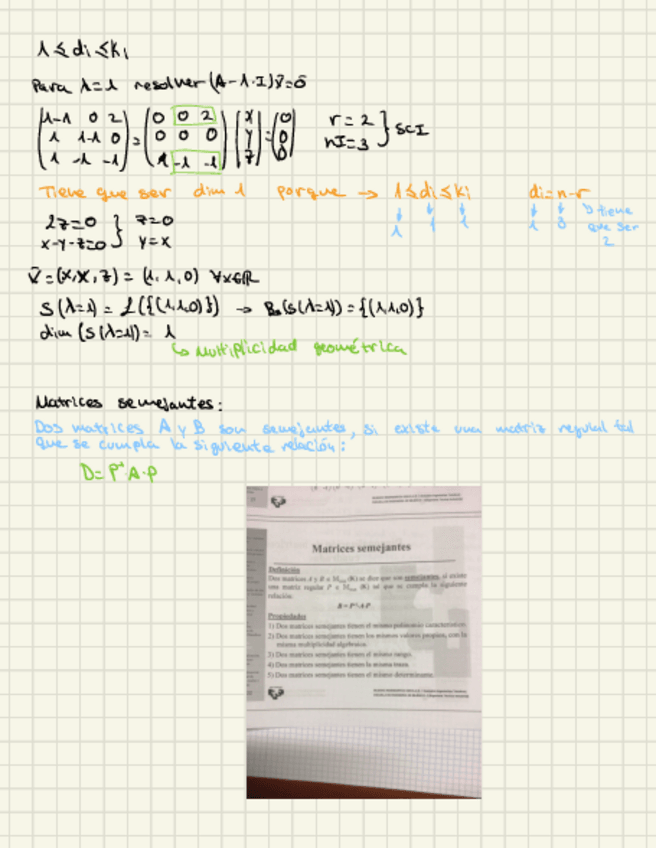 1 ≤ di ≤ ki
Para λ=1 resolver (A-λ·I)v̄=ō
(1-1 0 2 / 1 1-1 0 / 1 -1 -1) = (0 0 2 / 0 0 0 / 1 -1 -1) (x / y / z) = (0 / 0 / 0) r=2 nI=3 } SCI
Tiene que ser dim 1 porque → 1≤di≤ki di=n-r
1 1 1 1 3 tiene que ser 2
2z=0 } z=0
x-y-z=0 } y=x
v̄=(x,x,z) = (1,1,0) ∀x∈ℝ
S(λ=1) = L({(1,1,0)}) → B(S(λ=1)) = {(1,1,0)}
dim (S(λ=1)) = 1
↳ Multiplicidad geométrica
Matrices semejantes:
Dos matrices A y B son semejantes, si existe una matriz regular tal
que se cumpla la siguiente relación:
D=P⁻¹·A·P
Matrices semejantes
Definición
Dos matrices A y B ∈ M (K) se dice que son semejantes, si existe
una matriz regular P ∈ M (K) tal que se cumpla la siguiente
relación:
B=P⁻¹AP
Propiedades
1) Dos matrices semejantes tienen el mismo polinomio característico.
2) Dos matrices semejantes tienen los mismos valores propios, con la
misma multiplicidad algebraica.
3) Dos matrices semejantes tienen el mismo rango.
4) Dos matrices semejantes tienen la misma traza.
5) Dos matrices semejantes tienen el mismo determinante.